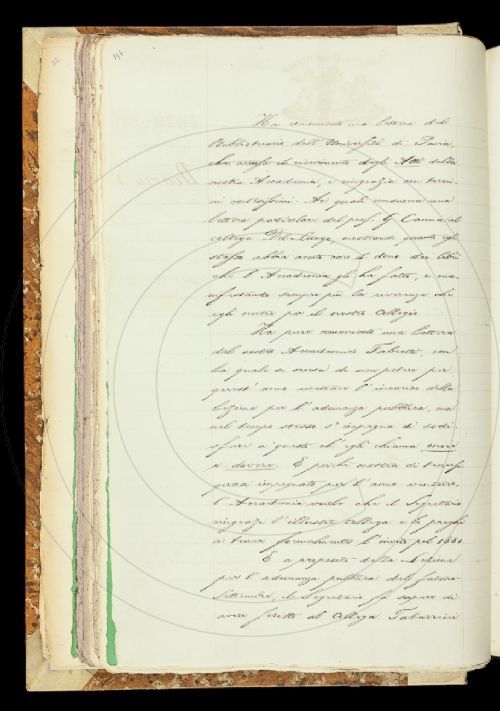 22
144
Ha comunicato una lettera del
Bibliotecario dell'Università di Pavia,
che accusa il ricevimento degli Atti della
nostra Accademia, e ringrazia con termi-
ni cortesissimi. Ai quali
lettera particolare del prof. G. Canna al
collega Del Lungo, mostrando quanto egli
stesso abbia avuto caro il dono dei libri
che l'Accademia gli ha fatto, e ma-
nifestando sempre più la riverenza che
egli nutre per il nostro Collegio.
Ha pure comunicato una lettera
del nostro Accademico Fabretti, con
la quale si scusa di non potere per
quest'anno accettare l'incarico della
lezione per l'adunanza pubblica, ma
nel tempo stesso s'impegna di sodi-
sfare a questo che egli chiama onore
e dovere. E poichè mostra di
quasi impegnato per l'anno venturo,
l'Accademia vuole che il Segretario
ringrazi l'illustre Collega e lo preghi
a tenere formalmente l'invito pel 1880.
E a proposito della Lezione
per l'adunanza pubblica del futuro
Settembre, il Segretario fa sapere di
avere scritto al Collega Tabarrini